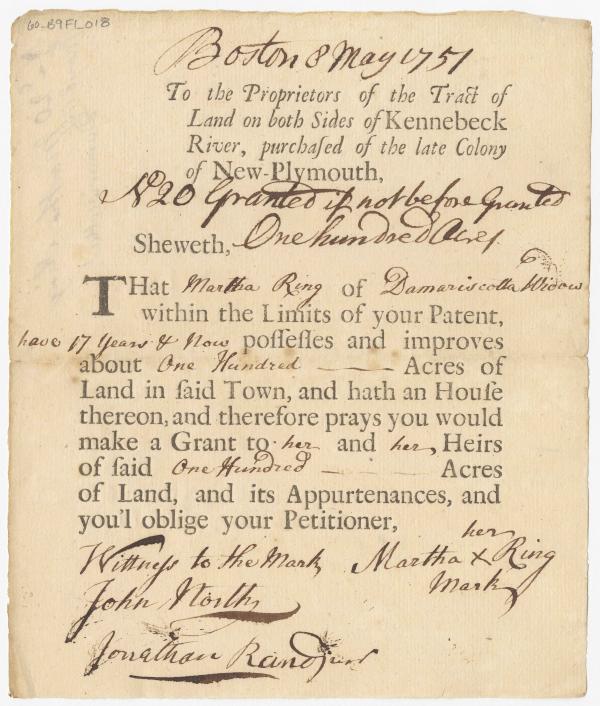 60-B9FL018
Boston 8 May 1751
To the Proprietors of the Tract of
Land on both Sides of Kennebeck
River, purchaſed of the late Colony
of New-Plymouth,
No 20 Granted if not before Granted
One hundred Acres
Sheweth,
THat Martha Ring of Damariscotta Widow
within the Limits of your Patent,
have 17 Years & Now poſſeſſes and improves
about One Hundred Acres of
Land in ſaid Town, and hath an Houſe
thereon, and therefore prays you would
make a Grant to her and her Heirs
of ſaid One Hundred Acres
of Land, and its Appurtenances, and
you'l oblige your Petitioner,
Wittness to the Mark
her
Martha x Ring
Mark
John North
Jonathan